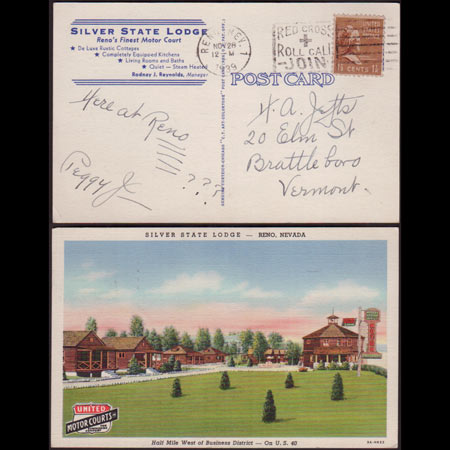 SILVER STATE LODGE
Reno's Finest Motor Court
★ De Luxe Rustic Cottages
★ Completely Equipped Kitchens
★ Living Rooms and Baths
★ Quiet — Steam Heated
Rodney J. Reynolds, Manager
RENO, NEV. 1
NOV 28
12 - M
1939
RED CROSS
ROLL CALL
JOIN
1½ CENTS 1½
POST CARD
Here at Reno
Peggy Jc
???
H. A. Jefts
20 Elm St
Brattleboro
Vermont.
SILVER STATE LODGE — RENO, NEVADA
UNITED
MOTOR COURTS
Half Mile West of Business District — On U. S. 40